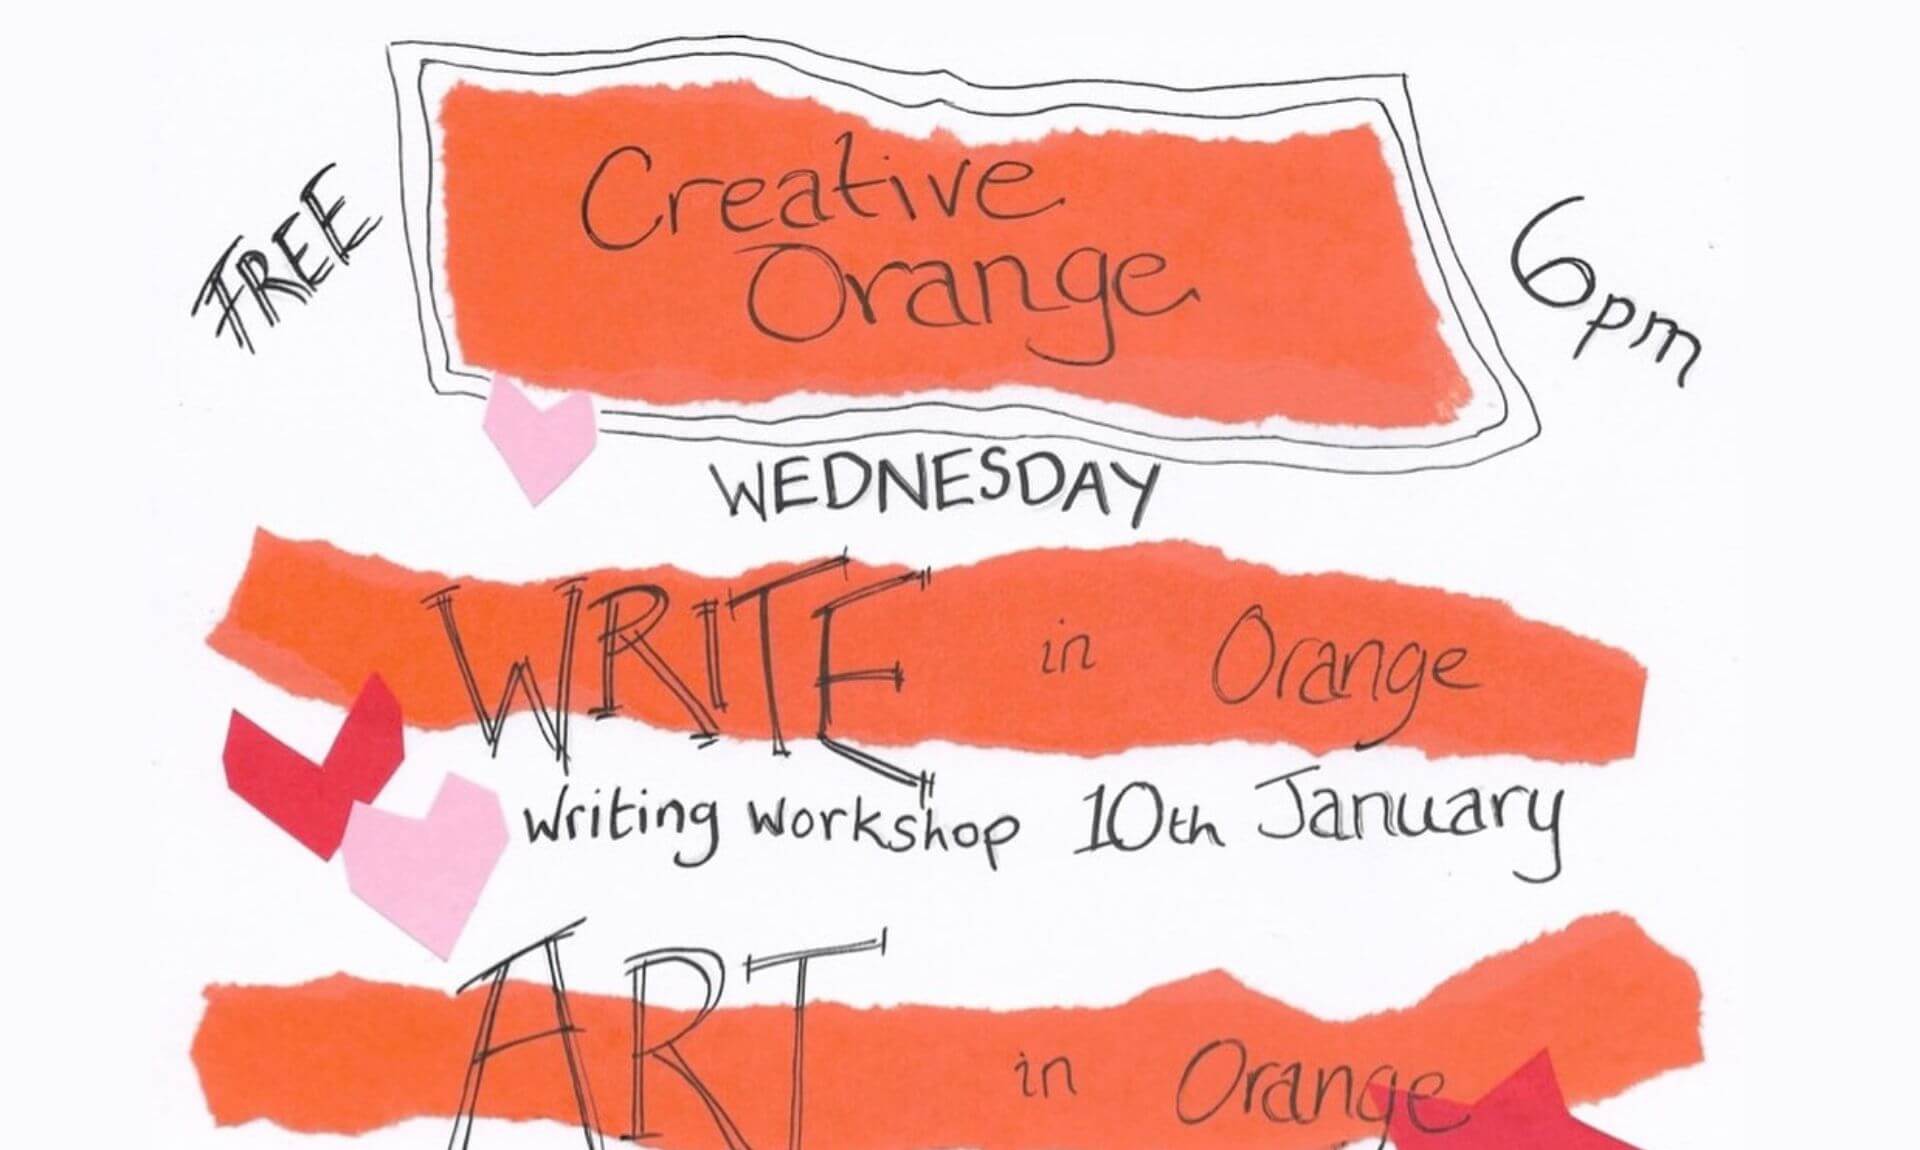 FREE
Creative
Orange
6pm
WEDNESDAY
WRITE in Orange
Writing Workshop 10th January
ART in Orange